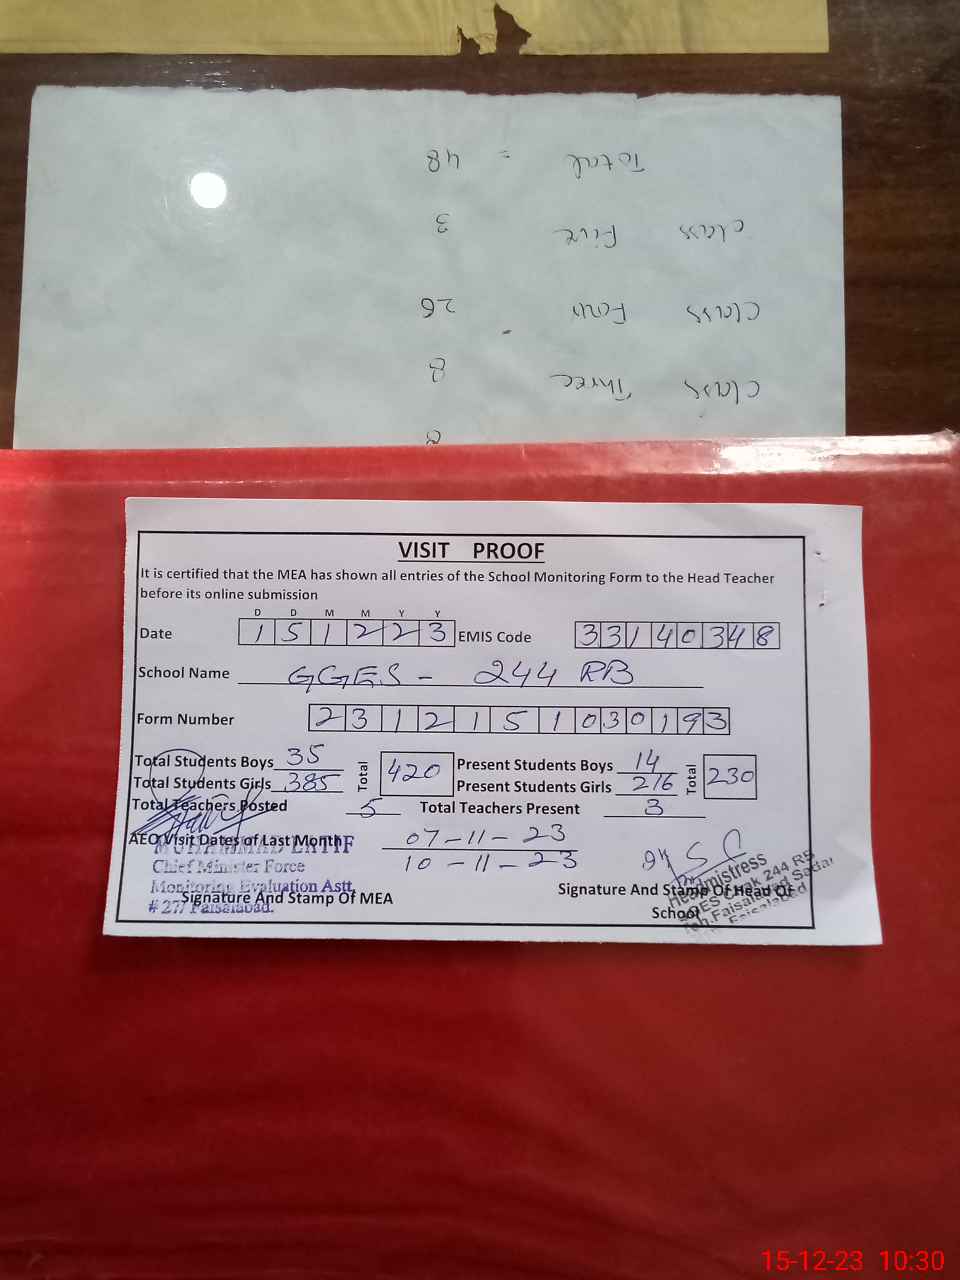 Total = 48
Class Five 3
Class Four 26
Class Three 8
VISIT PROOF
It is certified that the MEA has shown all entries of the School Monitoring Form to the Head Teacher
before its online submission
D D M M Y Y
Date 1 5 1 2 2 3 EMIS Code 3 3 1 4 0 3 4 8
School Name GGES - 244 RB
Form Number 2 3 1 2 1 5 1 0 3 0 1 9 3
Total Students Boys 35 Total 420 Present Students Boys 14 Total 230
Total Students Girls 385 Present Students Girls 216
Total Teachers Posted 5 Total Teachers Present 3
AEO Visit Dates of Last Month 07-11-23
10-11-23
MUHAMMAD LATIF
Chief Minister Force
Monitoring Evaluation Astt.
# 277 Faisalabad.
Signature And Stamp Of MEA
Signature And Stamp Of Head Of
School
Headmistress
Chak 244 RB
Faisalabad Sadar
Faisalabad
15-12-23 10:30